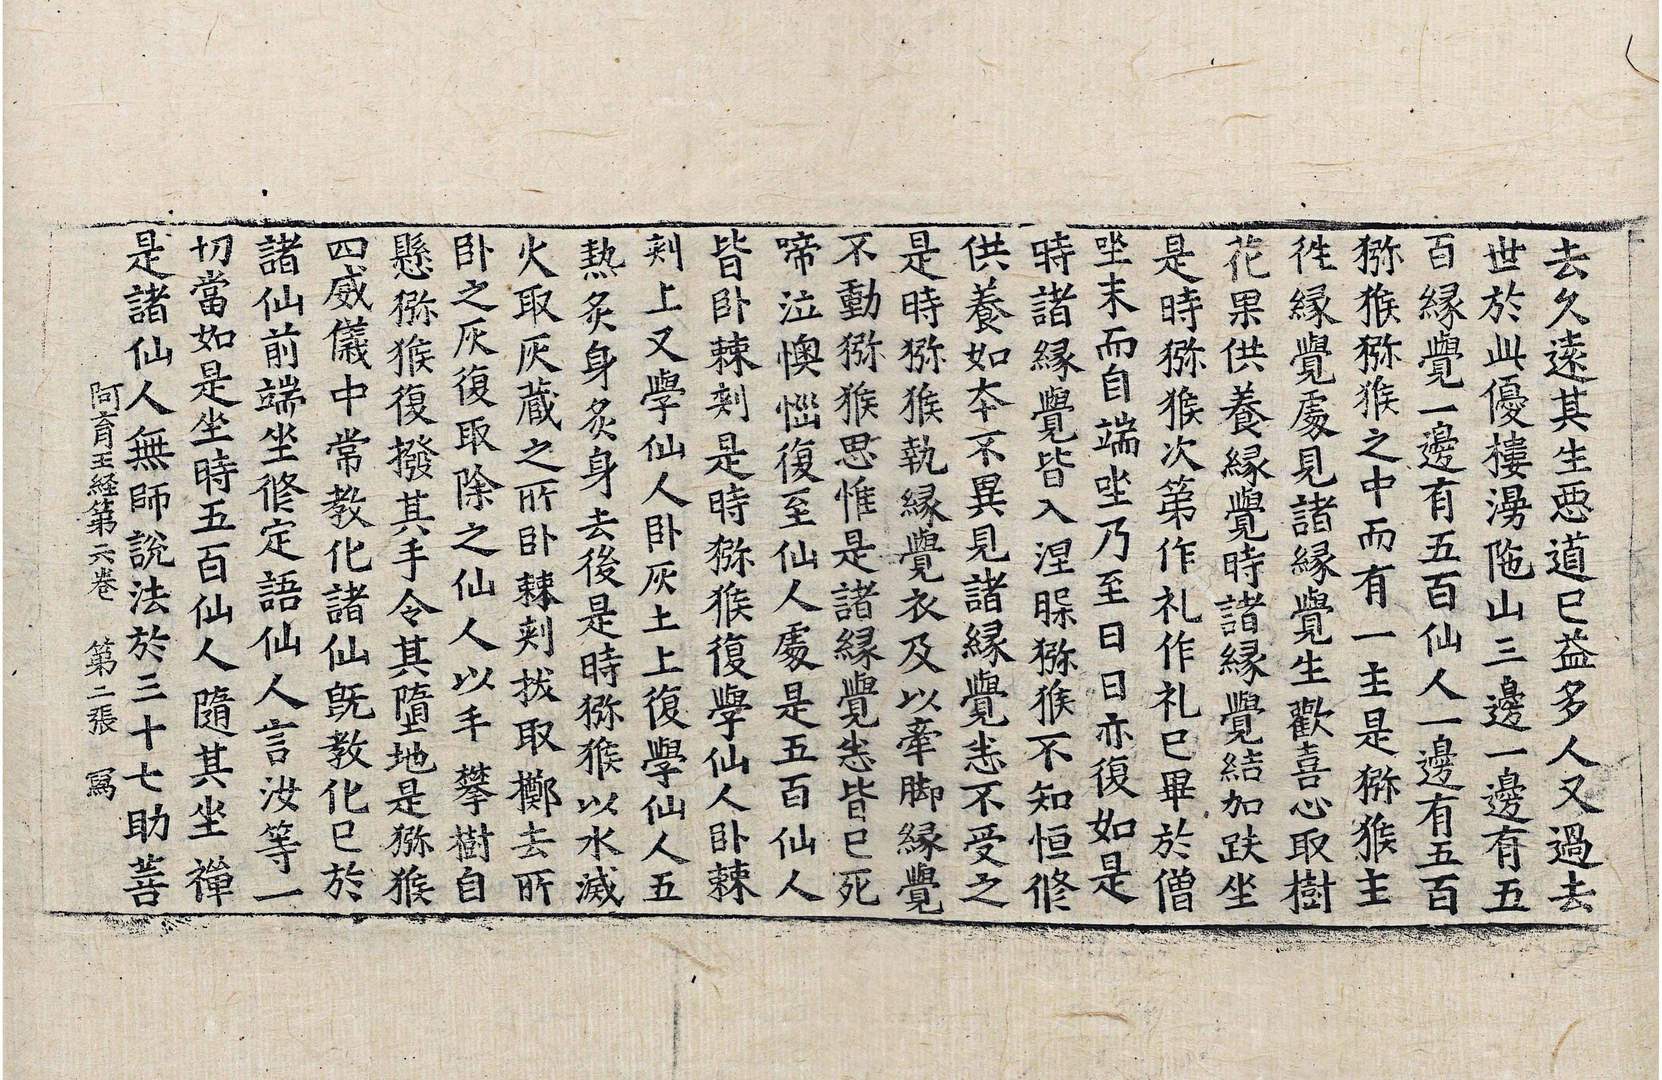 去久遠其生惡道已益多人又過去
世於此優樓漫陁山三邊一邊有五
百縁覺一邊有五百仙人一邊有五百
猕猴猕猴之中而有一主是猕猴主
徃縁覺處見諸縁覺生歡喜心取樹
花果供養縁覺時諸縁覺結加趺坐
是時猕猴次第作礼作礼已畢於僧
坐末而自端坐乃至日日亦復如是
時諸縁覺皆入涅䐗猕猴不知恒脩
供養如本不異見諸縁覺悉不受之
是時猕猴執縁覺衣及以牽脚縁覺
不動猕猴思惟是諸縁覺悉皆已死
啼泣懊惱復至仙人處是五百仙人
皆卧棘刾是時猕猴復學仙人卧棘
刾上又學仙人卧灰土上復學仙人五
熱炙身炙身去後是時猕猴以水滅
火取灰蔵之所卧棘刾拔取擲去所
卧之灰復取除之仙人以手攀樹自
懸猕猴復撥其手令其墮地是猕猴
四威儀中常教化諸仙旣教化已於
諸仙前端坐脩定語仙人言汝等一
切當如是坐時五百仙人隨其坐禪
是諸仙人無師說法於三十七助菩
阿育王経第六卷 第二張 寫